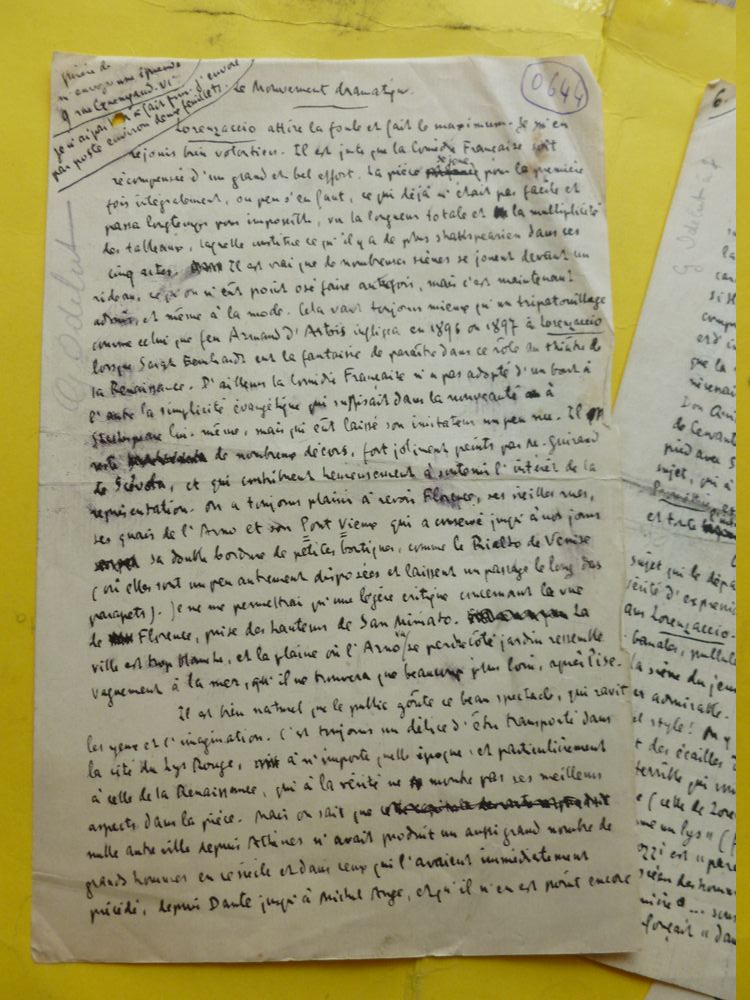 Prière de
m'envoyer une épreuve
9 rue Guénégaud. VIe
Je n'ai pas tout à fait fini. J'envoie
par poste environ deux feuillets.
0644
Le Mouvement dramatique.
Lorenzaccio attire la foule et fait le maximum. Je m'en
réjouis bien volontiers. Il est juste que la Comédie Française soit
récompensée d'un grand et bel effort. La pièce se joue pour la première
fois intégralement, ou peu s'en faut, ce qui déjà n'était pas facile et
passa longtemps pour impossible, vu la longueur totale et la multiplicité
des tableaux, laquelle constitue ce qu'il y a de plus shakespearien dans ces
cinq actes. Il est vrai que de nombreuses scènes se jouent devant un
rideau, ce qu'on n'eût point osé faire autrefois, mais c'est maintenant
admis, et même à la mode. Cela vaut toujours mieux qu'un tripatouillage
comme celui que feu Armand d'Artois infligea en 1896 ou 1897 à Lorenzaccio
lorsque Sarah Bernhardt eut la fantaisie de paraître dans ce rôle au théâtre de
la Renaissance. D'ailleurs la Comédie Française n'a pas adopté d'un bout à
l'autre la simplicité évangélique qui suffisait dans la nouveauté à
Shakespeare lui-même, mais qui eût laissé son imitateur un peu nu. Il
reste de nombreux décors, fort joliment peints par M. Guirand
de Scévola, et qui contribuent heureusement à soutenir l'intérêt de la
représentation. On a toujours plaisir à revoir Florence, ses vieilles rues,
ses quais de l'Arno et son Pont Vieux qui a conservé jusqu'à nos jours
sa double bordure de petites boutiques, comme le Rialto de Venise
(où elles sont un peu autrement disposées et laissent un passage le long des
parapets). Je ne me permettrai qu'une légère critique concernant la vue
de Florence, prise des hauteurs de San Miniato. La
ville est trop blanche, et la plaine où l'Arno va se perdre côté jardin ressemble
vaguement à la mer, qu'il ne trouvera que beaucoup plus loin, après Pise.
Il est bien naturel que le public goûte ce beau spectacle, qui ravit
les yeux et l'imagination. C'est toujours un délice d'être transporté dans
la cité du Lys Rouge, à n'importe quelle époque, et particulièrement
à celle de la Renaissance, qui à la vérité ne montre pas ses meilleurs
aspects dans la pièce. Mais on sait que
nulle autre ville depuis Athènes n'avait produit un aussi grand nombre de
grands hommes en ce siècle et dans ceux qui l'avaient immédiatement
précédé, depuis Dante jusqu'à Michel Ange, et qu'il n'en est point encore
6.
Don
de Cervantes
sujet, qui à
et
sujet qui le dépa
vérité d'expression
dans Lorenzaccio.
banales, pullule
la scène du jeu
admirable.
style! On y
des écailles
terrible qui
(celle de Loren
un lys" (
est "pare